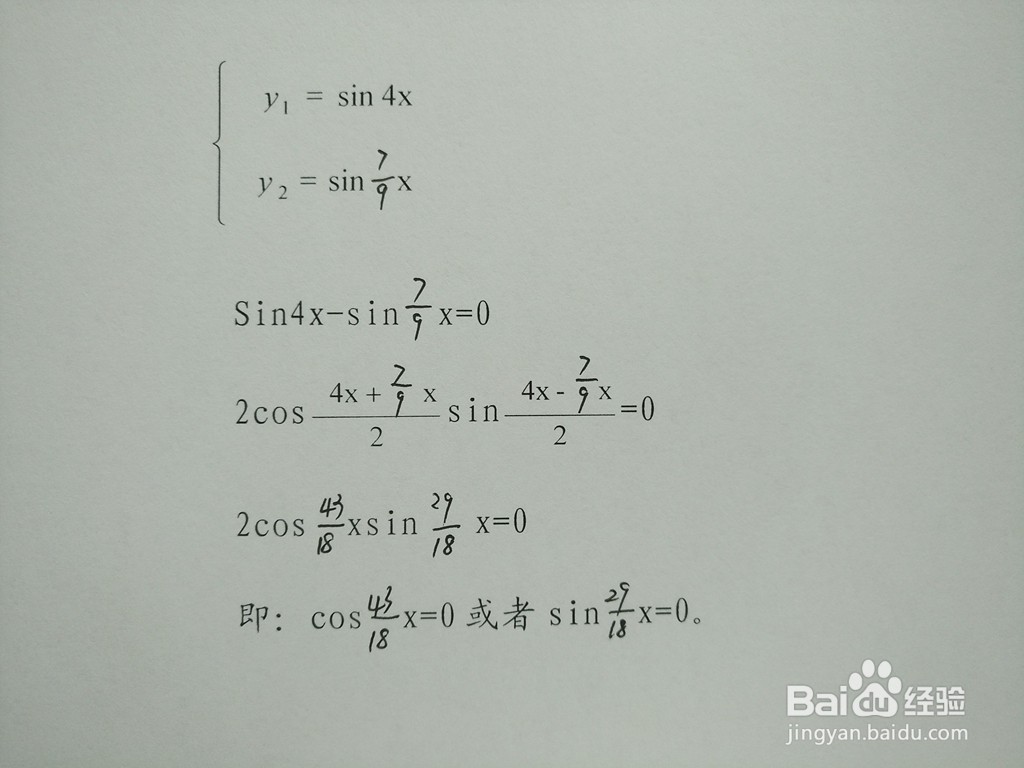 y₁ = sin 4x
y₂ = sin 7/9 x
Sin4x-sin 7/9 x=0
2cos (4x + 7/9 x)/2 sin (4x - 7/9 x)/2 =0
2cos 43/18 xsin 29/18 x=0
即: cos 43/18 x=0 或者 sin 29/18 x=0。
Bai du 经验
jingyan.baidu.com